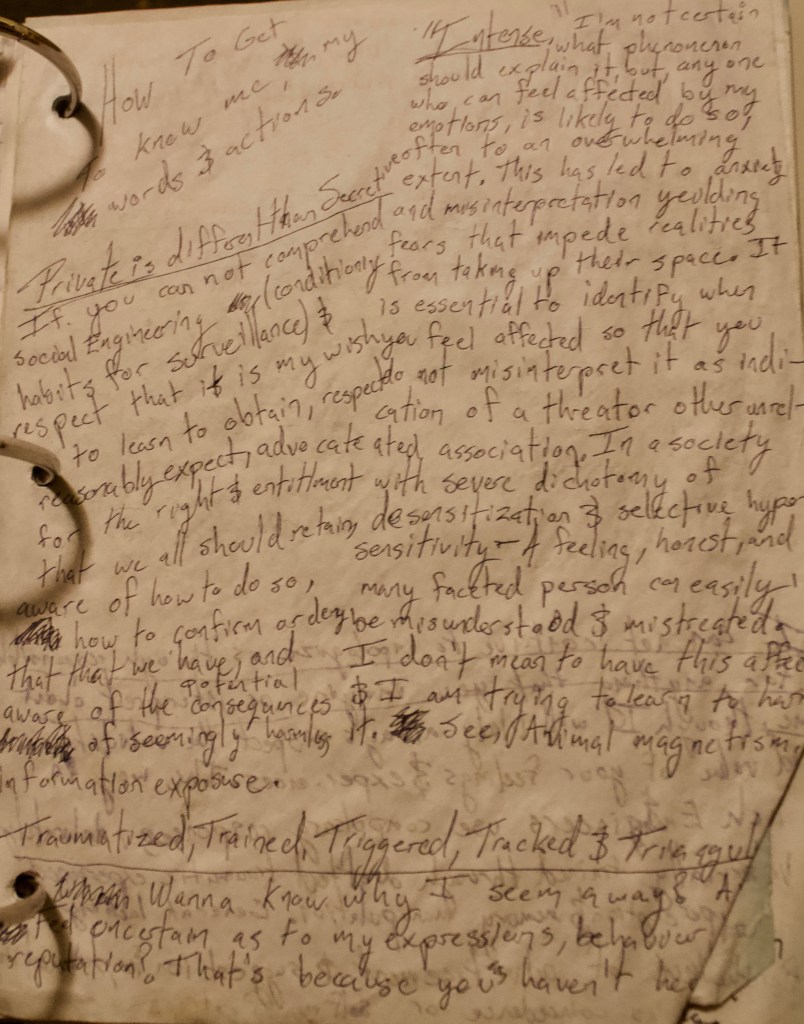 How To Get
To know me, my
words & actions.
Private is different than Secret
If you can not comprehend
social Engineering (conditioning
habits for surveillance) &
respect that it is my wish
to learn to obtain, respect
reasonably expect, advocate
for the right & entitlment
that we all should retain,
aware of how to do so,
how to confirm or deny
that that we have, and
aware of the potential consequences
of seemingly harmless
information exposure.
"Intense," I'm not certain
what phenomenon
should explain it, but, any one
who can feel affected by my
emotions, is likely to do so,
often to an overwhelming
extent. This has led to anxiety
and misinterpretation yeilding
fears that impede realities
from taking up their space. It
is essential to identify when
you feel affected so that you
do not misinterpret it as indi-
cation of a threat or other unrel-
ated association. In a society
with severe dichotomy of
desensitization & selective hyper
sensitivity - A feeling, honest, and
many faceted person can easily
be misunderstood & mistreated.
I don't mean to have this affec
& I am trying to learn to har
it. See, Animal magnetism.
Traumatized, Trained, Triggered, Tracked &
Wanna know why I seem a way? A
uncertain as to my expressions, behaviour
reputation? That's because you haven't